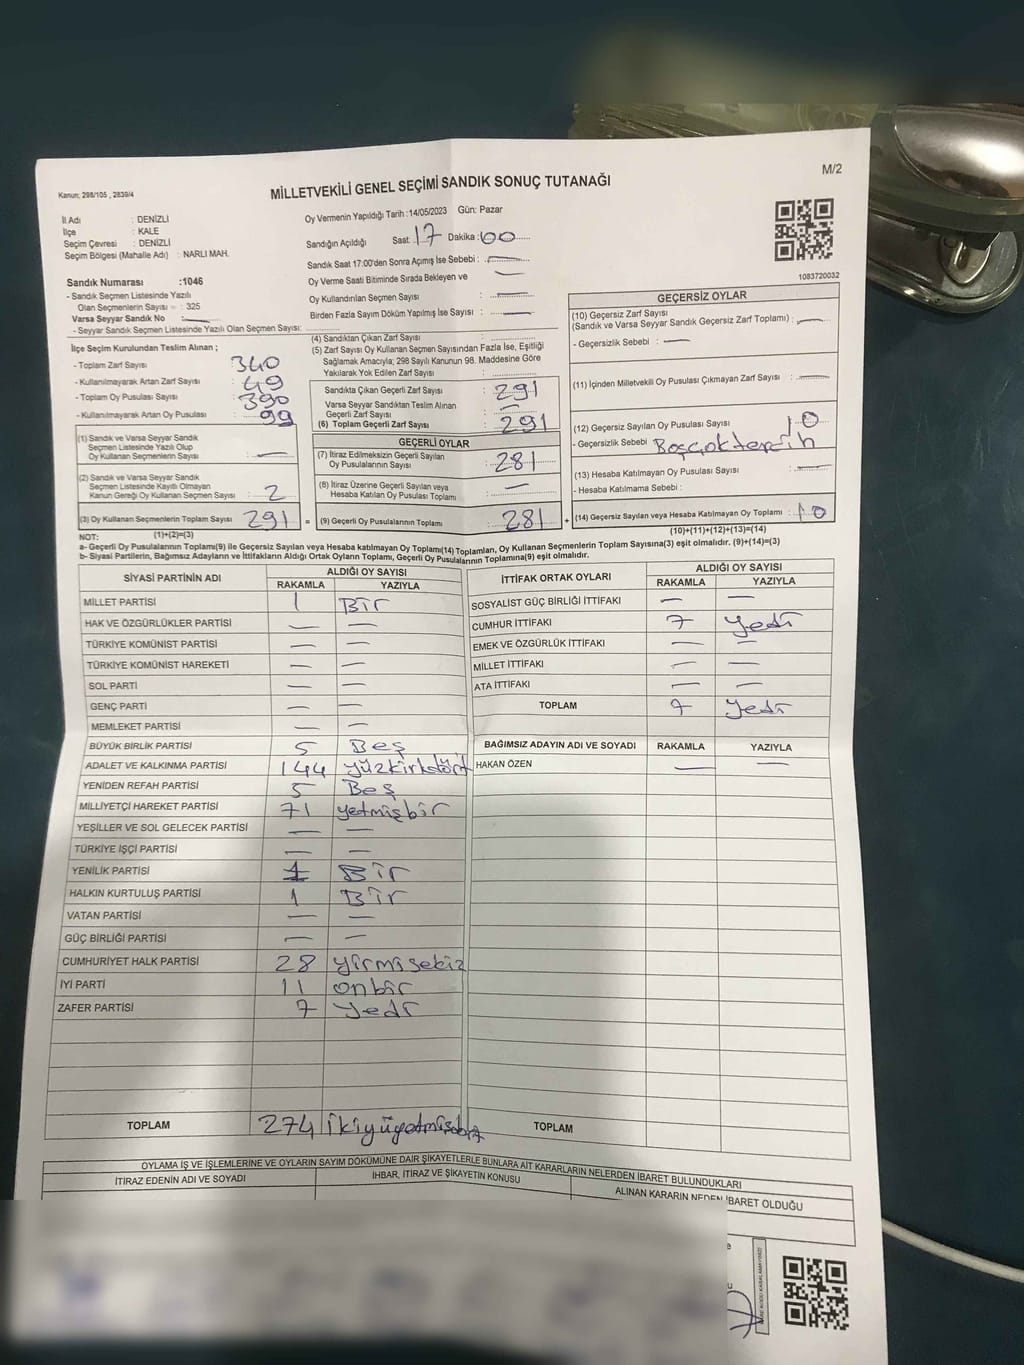 M/2
Kanun; 298/105 , 2839/4
MİLLETVEKİLİ GENEL SEÇİMİ SANDIK SONUÇ TUTANAĞI
İl Adı : DENİZLİ
İlçe : KALE
Seçim Çevresi : DENİZLİ
Seçim Bölgesi (Mahalle Adı) : NARLI MAH.
Oy Vermenin Yapıldığı Tarih :14/05/2023 Gün: Pazar
Sandığın Açıldığı Saat 17 Dakika : 00
Sandık Saat 17:00'den Sonra Açımış İse Sebebi : —
Oy Verme Saati Bitiminde Sırada Bekleyen ve
Oy Kullandırılan Seçmen Sayısı : —
Birden Fazla Sayım Döküm Yapılmış İse Sayısı : —
1083720032
Sandık Numarası :1046
- Sandık Seçmen Listesinde Yazılı
Olan Seçmenlerin Sayısı : 325
Varsa Seyyar Sandık No —
- Seyyar Sandık Seçmen Listesinde Yazılı Olan Seçmen Sayısı:
İlçe Seçim Kurulundan Teslim Alınan ;
- Toplam Zarf Sayısı : 340
- Kullanılmayarak Artan Zarf Sayısı : 49
- Toplam Oy Pusulası Sayısı : 390
- Kullanılmayarak Artan Oy Pusulası : 99
(1) Sandık ve Varsa Seyyar Sandık
Seçmen Listesinde Yazılı Olup
Oy Kullanan Seçmenlerin Sayısı : —
(2) Sandık ve Varsa Seyyar Sandık
Seçmen Listesinde Kayıtlı Olmayan
Kanun Gereği Oy Kullanan Seçmen Sayısı : 2
(3) Oy Kullanan Seçmenlerin Toplam Sayısı : 291 =
(1)+(2)=(3)
(4) Sandıktan Çıkan Zarf Sayısı :
(5) Zarf Sayısı Oy Kullanan Seçmen Sayısından Fazla İse, Eşitliği
Sağlamak Amacıyla; 298 Sayılı Kanunun 98. Maddesine Göre
Yakılarak Yok Edilen Zarf Sayısı :
Sandıkta Çıkan Geçerli Zarf Sayısı : 291
Varsa Seyyar Sandıktan Teslim Alınan
Geçerli Zarf Sayısı : —
(6) Toplam Geçerli Zarf Sayısı : 291
GEÇERLİ OYLAR
(7) İtiraz Edilmeksizin Geçerli Sayılan
Oy Pusulalarının Sayısı : 281
(8) İtiraz Üzerine Geçerli Sayılan veya
Hesaba Katılan Oy Pusulası Toplamı : —
(9) Geçerli Oy Pusulalarının Toplamı : 281 +
GEÇERSİZ OYLAR
(10) Geçersiz Zarf Sayısı
(Sandık ve Varsa Seyyar Sandık Geçersiz Zarf Toplamı) : —
- Geçersizlik Sebebi : —
(11) İçinden Milletvekili Oy Pusulası Çıkmayan Zarf Sayısı : —
(12) Geçersiz Sayılan Oy Pusulası Sayısı : 10
- Geçersizlik Sebebi :
(13) Hesaba Katılmayan Oy Pusulası Sayısı : —
- Hesaba Katılmama Sebebi :
(14) Geçersiz Sayılan veya Hesaba Katılmayan Oy Toplamı : 10
(10)+(11)+(12)+(13)=(14)
NOT:
a- Geçerli Oy Pusulalarının Toplamı(9) ile Geçersiz Sayılan veya Hesaba katılmayan Oy Toplamı(14) Toplamları, Oy Kullanan Seçmenlerin Toplam Sayısına(3) eşit olmalıdır. (9)+(14)=(3)
b- Siyasi Partilerin, Bağımsız Adayların ve İttifakların Aldığı Ortak Oyların Toplamı, Geçerli Oy Pusulalarının Toplamına(9) eşit olmalıdır.
SİYASİ PARTİNİN ADI ALDIĞI OY SAYISI
RAKAMLA YAZIYLA
MİLLET PARTİSİ 1 Bir
HAK VE ÖZGÜRLÜKLER PARTİSİ — —
TÜRKİYE KOMÜNİST PARTİSİ — —
TÜRKİYE KOMÜNİST HAREKETİ — —
SOL PARTİ — —
GENÇ PARTİ — —
MEMLEKET PARTİSİ — —
BÜYÜK BİRLİK PARTİSİ 5 Beş
ADALET VE KALKINMA PARTİSİ 144 yüzkirkdört
YENİDEN REFAH PARTİSİ 5 Beş
MİLLİYETÇİ HAREKET PARTİSİ 71 yetmişbir
YEŞİLLER VE SOL GELECEK PARTİSİ — —
TÜRKİYE İŞÇİ PARTİSİ — —
YENİLİK PARTİSİ 1 Bir
HALKIN KURTULUŞ PARTİSİ 1 Bir
VATAN PARTİSİ — —
GÜÇ BİRLİĞİ PARTİSİ — —
CUMHURİYET HALK PARTİSİ 28 yirmisekiz
İYİ PARTİ 11 onbir
ZAFER PARTİSİ 7 yedi
TOPLAM 274
İTTİFAK ORTAK OYLARI ALDIĞI OY SAYISI
RAKAMLA YAZIYLA
SOSYALİST GÜÇ BİRLİĞİ İTTİFAKI — —
CUMHUR İTTİFAKI 7 yedi
EMEK VE ÖZGÜRLÜK İTTİFAKI — —
MİLLET İTTİFAKI — —
ATA İTTİFAKI — —
TOPLAM 7 yedi
BAĞIMSIZ ADAYIN ADI VE SOYADI RAKAMLA YAZIYLA
HAKAN ÖZEN — —
TOPLAM
OYLAMA İŞ VE İŞLEMLERİNE VE OYLARIN SAYIM DÖKÜMÜNE DAİR ŞİKAYETLERLE BUNLARA AİT KARARLARIN NELERDEN İBARET BULUNDUKLARI
İTİRAZ EDENİN ADI VE SOYADI İHBAR, İTİRAZ VE ŞİKAYETİN KONUSU ALINAN KARARIN NEDEN İBARET OLDUĞU